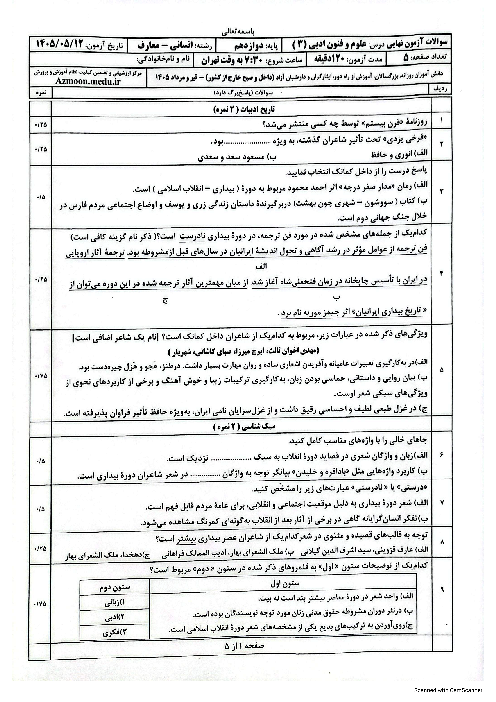 باسمه‌تعالی
سوالات آزمون نهایی درس: علوم و فنون ادبی (۳)
پایه: دوازدهم
رشته: انسانی – معارف
تاریخ آزمون: ۱۴۰۵/۰۵/۱۲
تعداد صفحه: ۵
مدت آزمون: ۱۲۰دقیقه
ساعت شروع: ۷:۳۰ به وقت تهران
نام و نام‌خانوادگی:
دانش آموزان روزانه، بزرگسالان، آموزش از راه دور، ایثارگران و داوطلبان آزاد (داخل و خارج از کشور) – تیر و مرداد ۱۴۰۵
مرکز ارزشیابی و تضمین کیفیت نظام آموزش و پرورش
Azmoon.medu.ir
ردیف
سوالات (پاسخ‌برگ دارد)
نمره
تاریخ ادبیات (۲ نمره)
۱
روزنامهٔ «قرن بیستم» توسط چه کسی منتشر می‌شد؟
۰/۲۵
۲
«فرخی یزدی» تحت تأثیر شاعران گذشته، به ویژه ................... بود.
الف) انوری و حافظ
ب) مسعود سعد و سعدی
۰/۲۵
۳
پاسخ درست را از داخل کمانک انتخاب نمایید.
الف) رمان «مدار صفر درجه» اثر احمد محمود مربوط به دورهٔ ( بیداری – انقلاب اسلامی ) است.
ب) کتاب ( سووشون – شهری چون بهشت) دربرگیرندهٔ داستان زندگی زری و یوسف و اوضاع اجتماعی مردم فارس در
خلال جنگ جهانی دوم است.
۰/۵
۴
کدام‌یک از جمله‌های مشخص شده در مورد فن ترجمه، در دورهٔ بیداری نادرست است؟( ذکر نام گزینه کافی است)
فن ترجمه از عوامل مؤثر در رشد آگاهی و تحول اندیشهٔ ایرانیان در سال‌های قبل از مشروطه بود. ترجمهٔ آثار اروپایی
الف
در ایران با تأسیس چاپخانه در زمان فتحعلی‌شاه آغاز شد. از میان مهمترین آثار ترجمه شده در این دوره می‌توان از
ب
ج
« تاریخ بیداری ایرانیان» اثر جیمز موریه نام برد.
۰/۲۵
۵
ویژگی‌های ذکر شده در عبارات زیر، مربوط به کدام‌یک از شاعران داخل کمانک است؟ [نام یک شاعر اضافی است]
(مهدی اخوان ثالث، ایرج میرزا، صبای کاشانی، شهریار )
الف)در به‌کارگیری تعبیرات عامیانه وآفریدن اشعاری ساده و روان مهارت بسیار داشت. درطنز، هجو و هزل چیره‌دست بود.
ب) بیان روایی و داستانی، حماسی بودن زبان، به‌کارگیری ترکیبات زیبا و خوش آهنگ و برخی از کاربردهای نحوی از
ویژگی‌های سبکی شعر اوست.
ج) در غزل طبعی لطیف و احساسی رقیق داشت و از غزل‌سرایان نامی ایران، به‌ویژه حافظ تأثیر فراوان پذیرفته است.
۰/۷۵
سبک شناسی ( ۲ نمره )
۶
جاهای خالی را با واژه‌های مناسب کامل کنید.
الف)زبان و واژگان شعری در قصاید دورهٔ انقلاب به سبک ................... نزدیک است.
ب) کاربرد واژه‌هایی مثل «بادافره و خلیدن» بیانگر توجه به واژگان .............. در شعر شاعران دورهٔ بیداری است.
۰/۵
۷
«درستی» یا «نادرستی» عبارت‌های زیر را مشخّص کنید.
الف) شعر دورهٔ بیداری به دلیل موقعیت اجتماعی و انقلابی، برای عامهٔ مردم قابل فهم است.
ب)تفکر انسان‌گرایانه گاهی در برخی از آثار بعد از انقلاب به‌گونه‌ای کمرنگ مشاهده می‌شود.
۰/۵
۸
توجه به قالب‌های قصیده و مثنوی در شعر کدام‌یک از شاعران عصر بیداری بیشتر است؟
الف) عارف قزوینی، سید اشرف الدین گیلانی
ب) ملک الشعرای بهار، ادیب الممالک فراهانی
ج)دهخدا، ملک الشعرای بهار
۰/۲۵
۹
کدام‌یک از توضیحات ستون «اول» به قلمروهای ذکر شده در ستون «دوم» مربوط است؟
ستون اول
ستون دوم
الف) واحد شعر در دورهٔ معاصر بیشتر بند است نه بیت.
۱)زبانی
ب) درنثر دوران مشروطه حقوق مدنی زنان مورد توجه نویسندگان بوده است.
۲)ادبی
ج)روی‌آوردن به ترکیب‌های بدیع یکی از مشخصه‌های شعر دورهٔ انقلاب اسلامی است.
۳)فکری
۰/۷۵
صفحه ۱ از ۵
Scanned with CamScanner